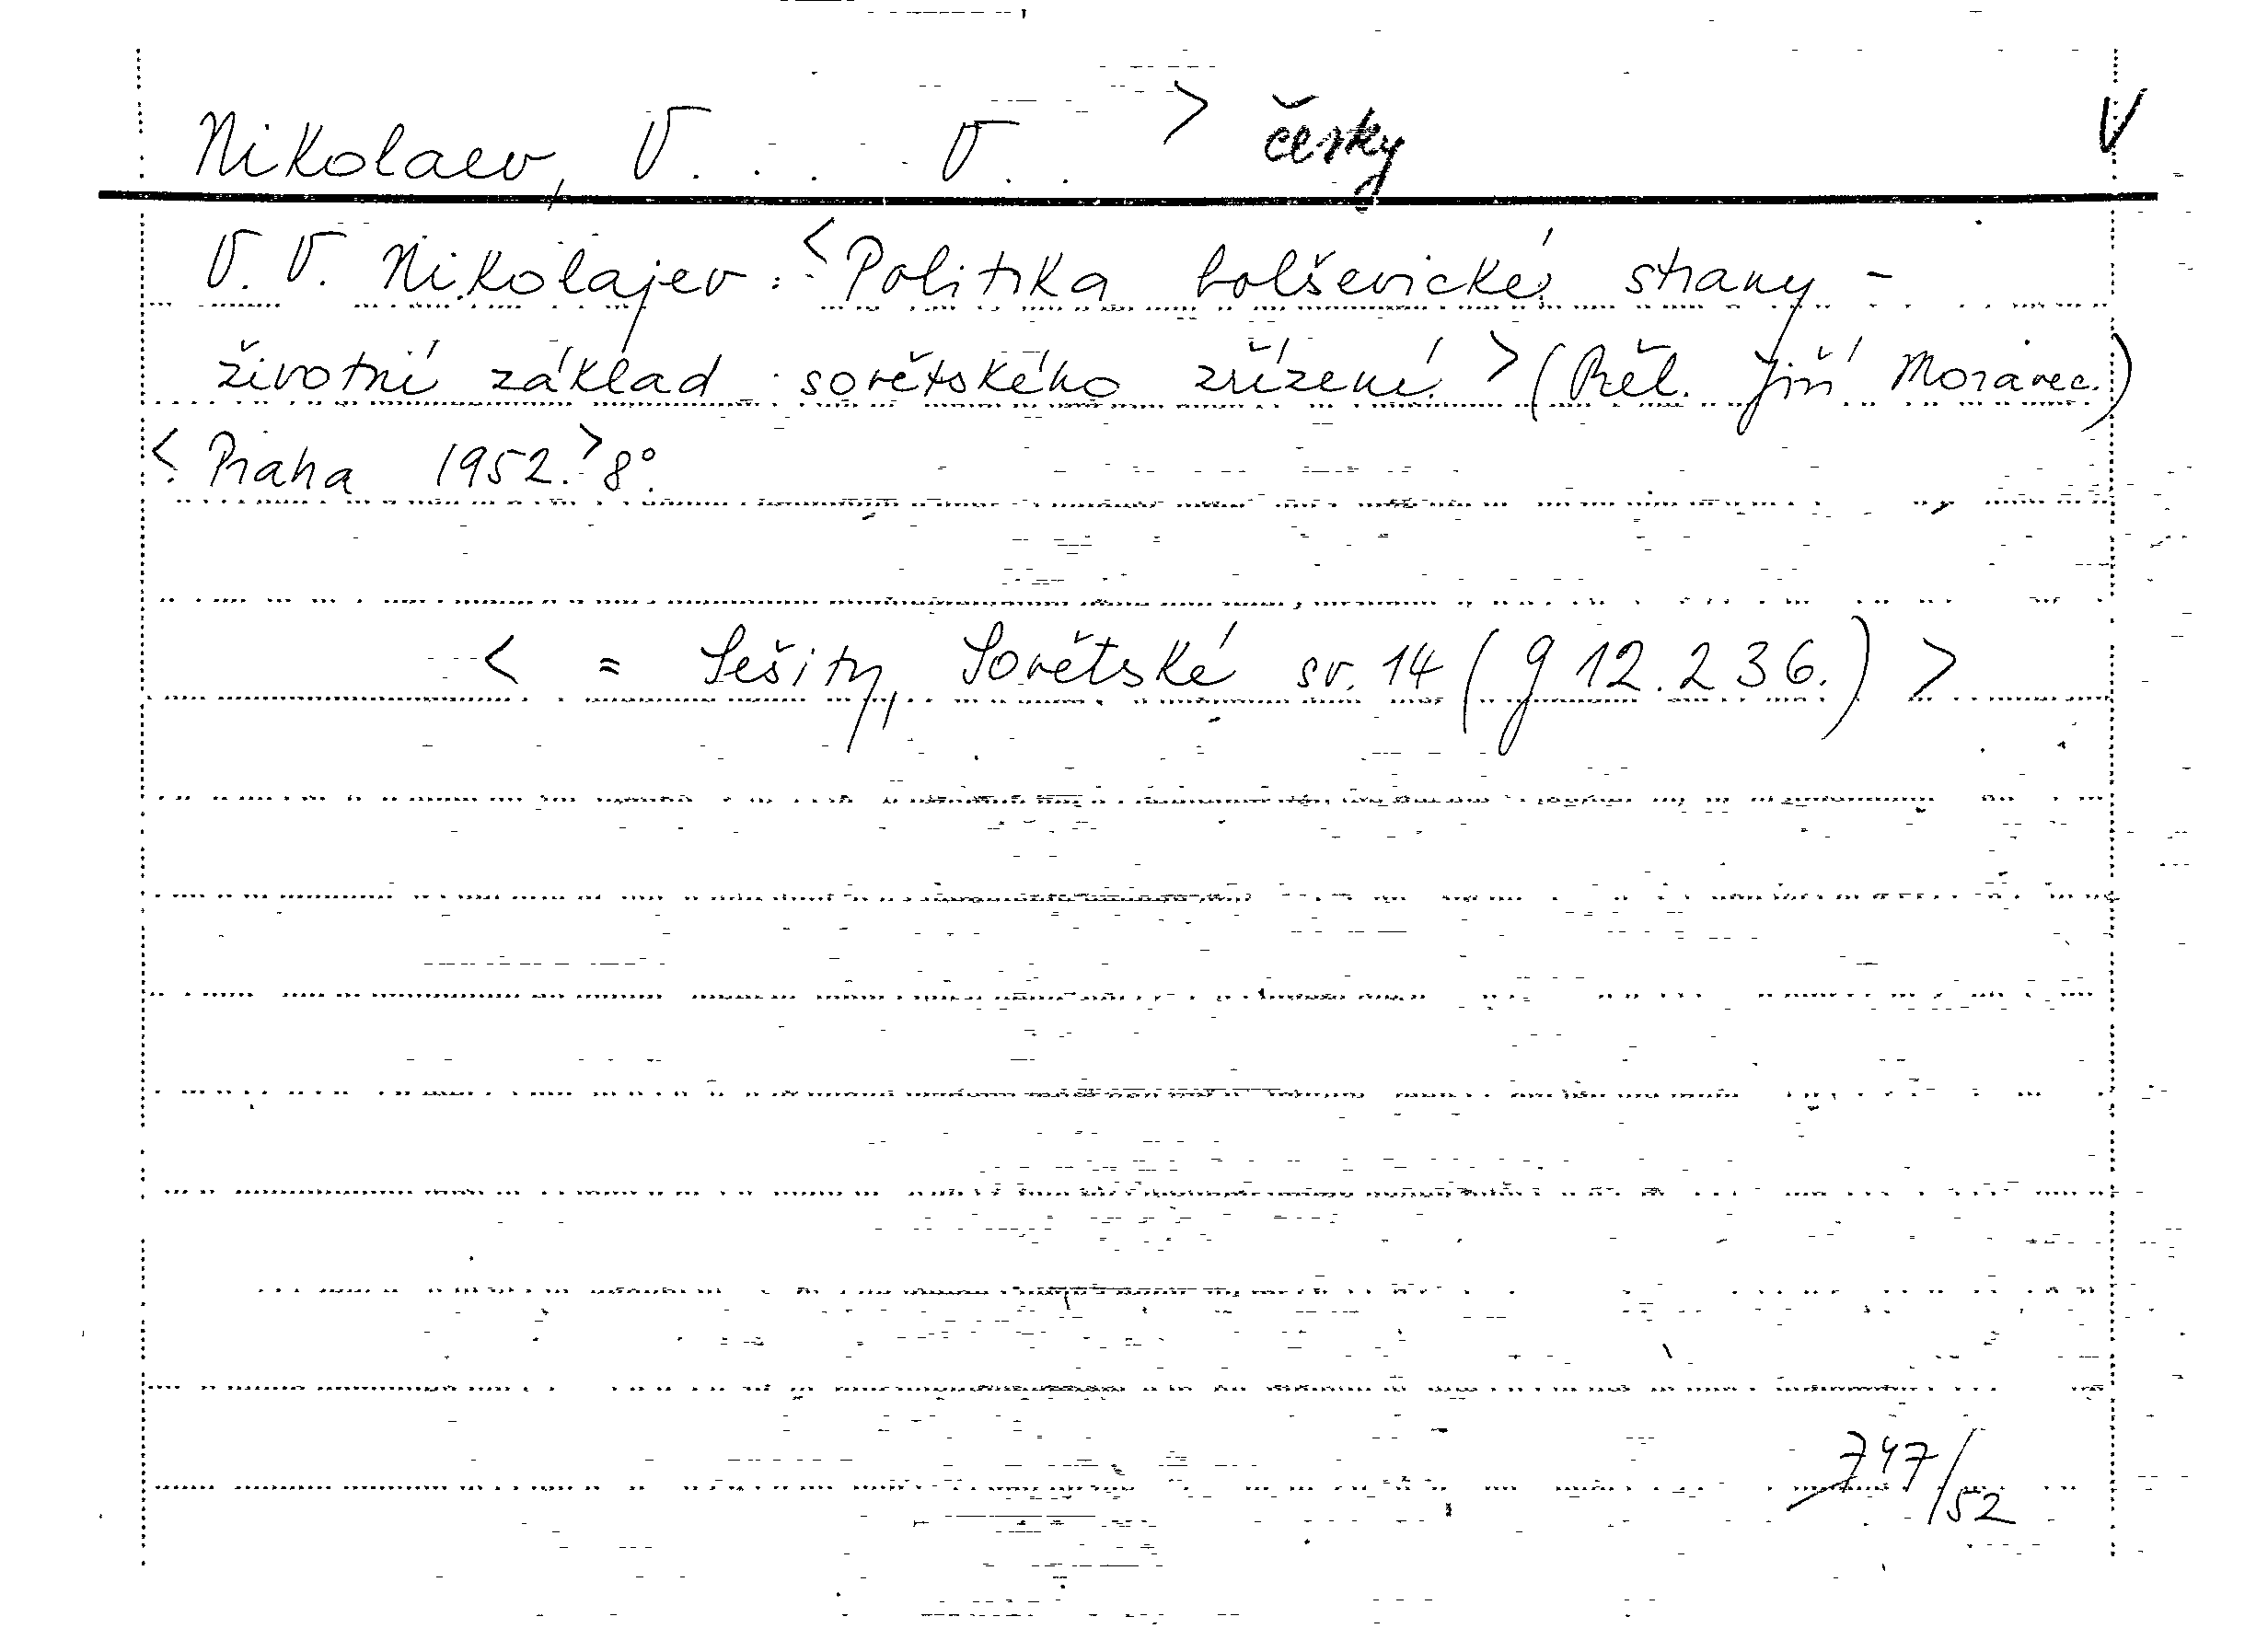 Nikolaev, V. . . V. . > česky V
V. V. Nikolajev: <Politika bolševické strany -
životní základ sovětského zřízení.> (Přel. Jiří Moravec.)
<Praha 1952.> 8°.
< = Sešity, Sovětské sv. 14 (g 12.236.) >
747/52